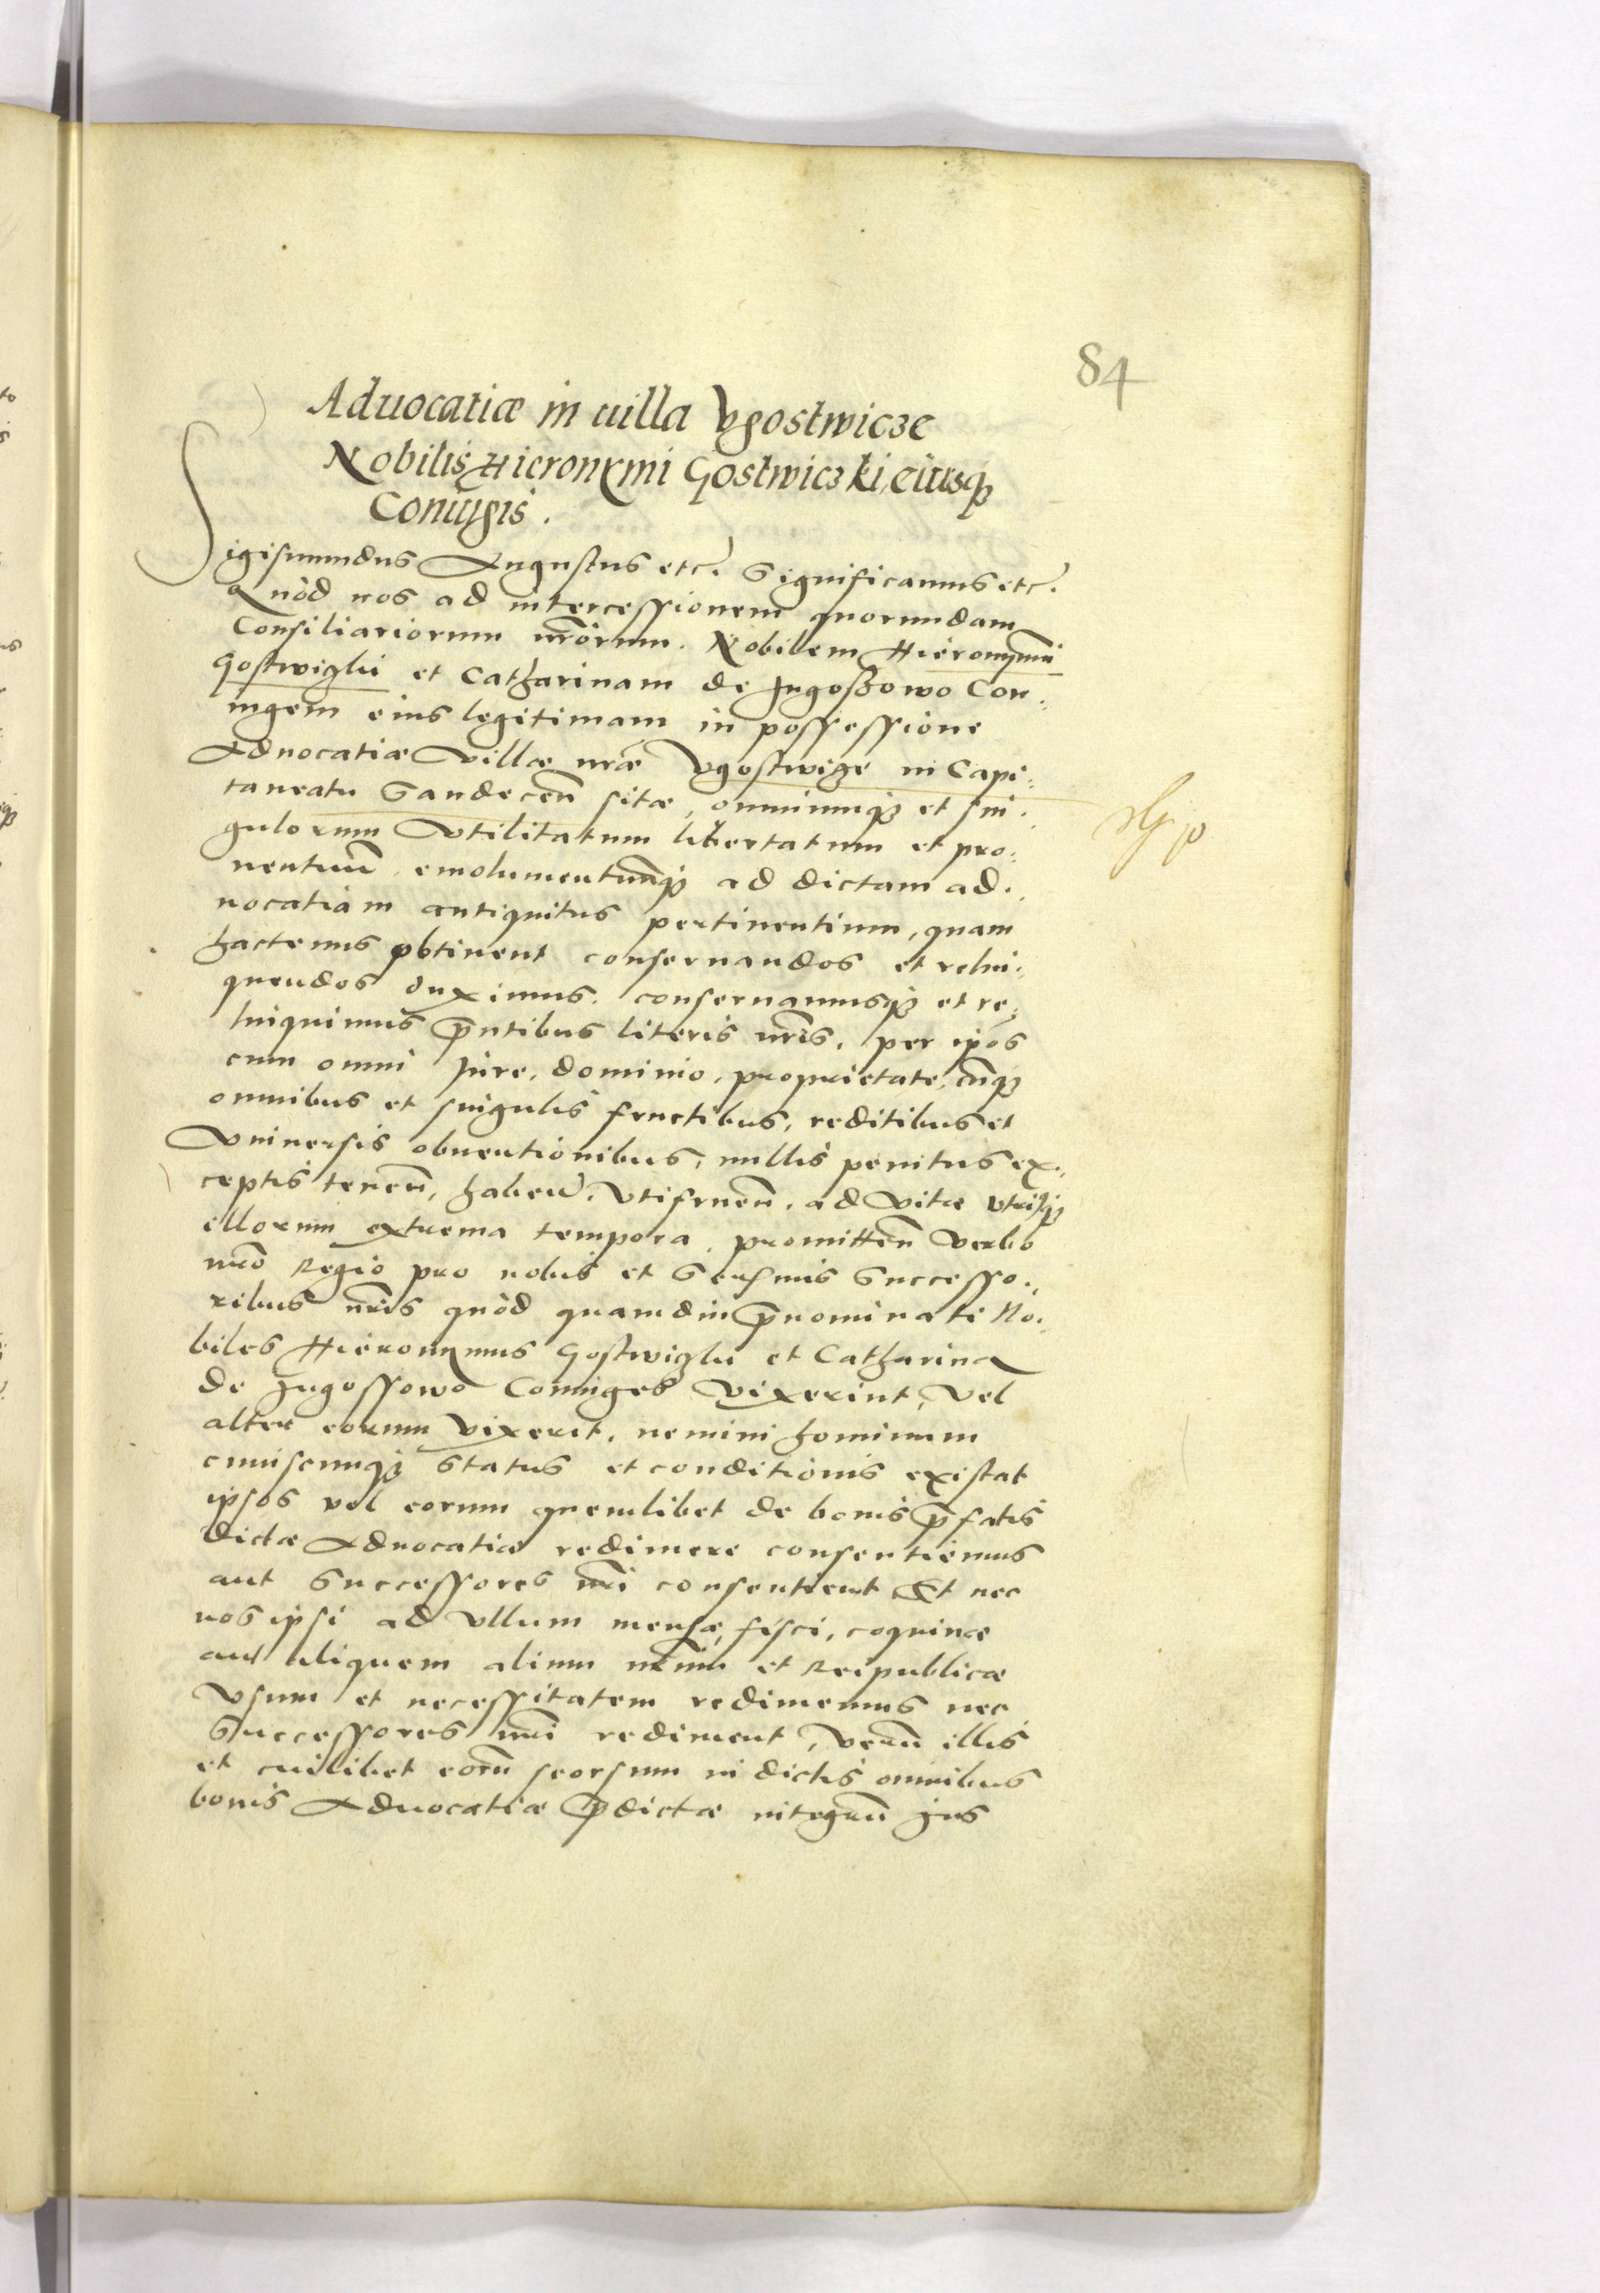 84
Aduocatiæ in uilla Vgostwicze
Nobilis Hieronymi Gostwiczki, eiusq₃
Coniugis.
Sigismundus Augustus etc. Significamus etc.
Quòd nos ad intercessionem quorundam
Consiliariorum nr̃orum. Nobilem Hieronymũ
Gostwiczki et Catharinam de Jugoszowo Con-
iugem eius legitimam in possessione
Aduocatiæ Villæ nr̃æ Vgostwicze in Capi-
taneatu Sandecen̄ sitæ, omniumq₃ et sin-
gulorum Vtilitatum libertatum et pro-
uentuũ emolumentumq₃ ad dictam ad-
uocatiam antiquitus pertinentium, quam
hactenus obtinent conseruandos et relin-
quendos duximus. conseruamusq₃ et re-
linquimus p̃ntibus literis nr̃is. per ip̃os
cum omni Jure, dominio, proprietate, cũq₃
omnibus et singulis fructibus, reditibus et
Vniuersis obuentionibus, nullis penitus ex-
ceptis tenen̄, haben̄. Vtifruen̄. ad Vitæ vtriusq₃
illorum extrema tempora. promitten̄ Verbo
nr̃o Regio pro nobis et Seren̄mis Successo-
ribus nr̃is quòd quamdiu p̃nominati No-
biles Hieronymus Gostwiczki et Catharina
de Jugossowo Coniuges Vixerint, Vel
alter eorum Vixerit. nemini hominum
cuiuscunq₃ Status et conditionis existat
ipsos vel eorum quemlibet de bonis p̃fatis
dictæ Aduocatiæ redimere consentiemus
aut Successores nr̃i consentient Et nec
nos ipsi ad Vllum mensæ, fisci, coquinæ
aut aliquem alium nr̃um et Reipublicæ
Vsum et necessitatem redimemus nec
Successores nr̃i rediment, Verũ illis
et cuilibet eorũ seorsum in dictis omnibus
bonis Aduocatiæ p̃dictæ integrũ Jus